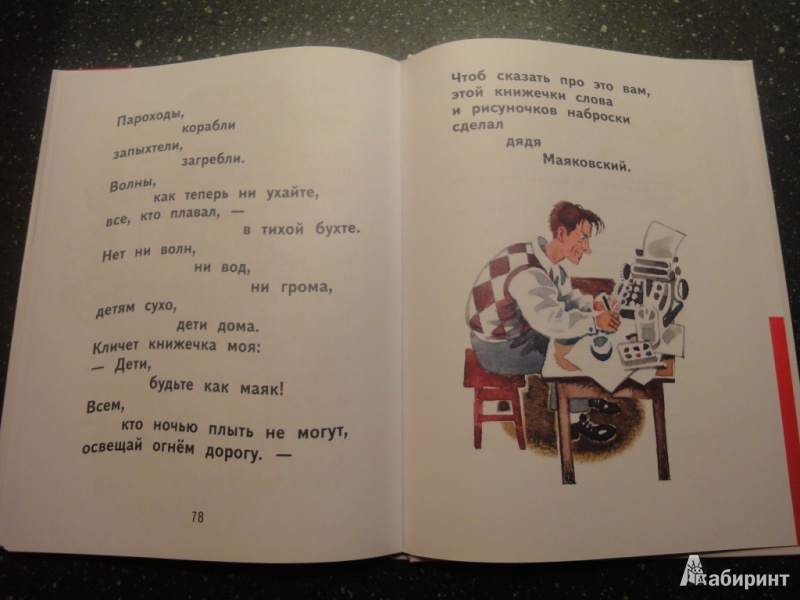 Пароходы,
корабли
запыхтели,
загребли.
Волны,
как теперь ни ухайте,
все, кто плавал, —
в тихой бухте.
Нет ни волн,
ни вод,
ни грома,
детям сухо,
дети дома.
Кличет книжечка моя:
— Дети,
будьте как маяк!
Всем,
кто ночью плыть не могут,
освещай огнём дорогу. —
78
Чтоб сказать про это вам,
этой книжечки слова
и рисуночков наброски
сделал
дядя
Маяковский.
Лабиринт